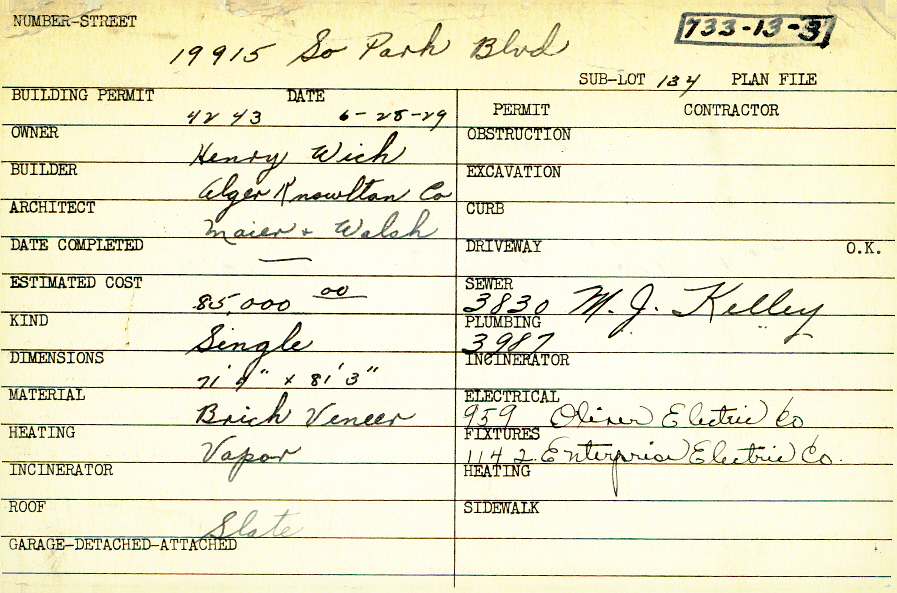 NUMBER-STREET
733-13-3
19915 So Park Blvd
SUB-LOT 134 PLAN FILE
BUILDING PERMIT DATE
4243 6-28-29
OWNER
Henry Wich
BUILDER
Alger Knowlton Co
ARCHITECT
Maier + Walsh
DATE COMPLETED
—
ESTIMATED COST
85,000 00
KIND
Single
DIMENSIONS
71' 9" x 81' 3"
MATERIAL
Brick Veneer
HEATING
Vapor
INCINERATOR
ROOF
Slate
GARAGE-DETACHED-ATTACHED
PERMIT CONTRACTOR
OBSTRUCTION
EXCAVATION
CURB
DRIVEWAY O.K.
SEWER
3830 M. J. Kelley
PLUMBING
3987 "
INCINERATOR
ELECTRICAL
959 Oliver Electric Co
FIXTURES
1142 Enterprise Electric Co.
HEATING
SIDEWALK